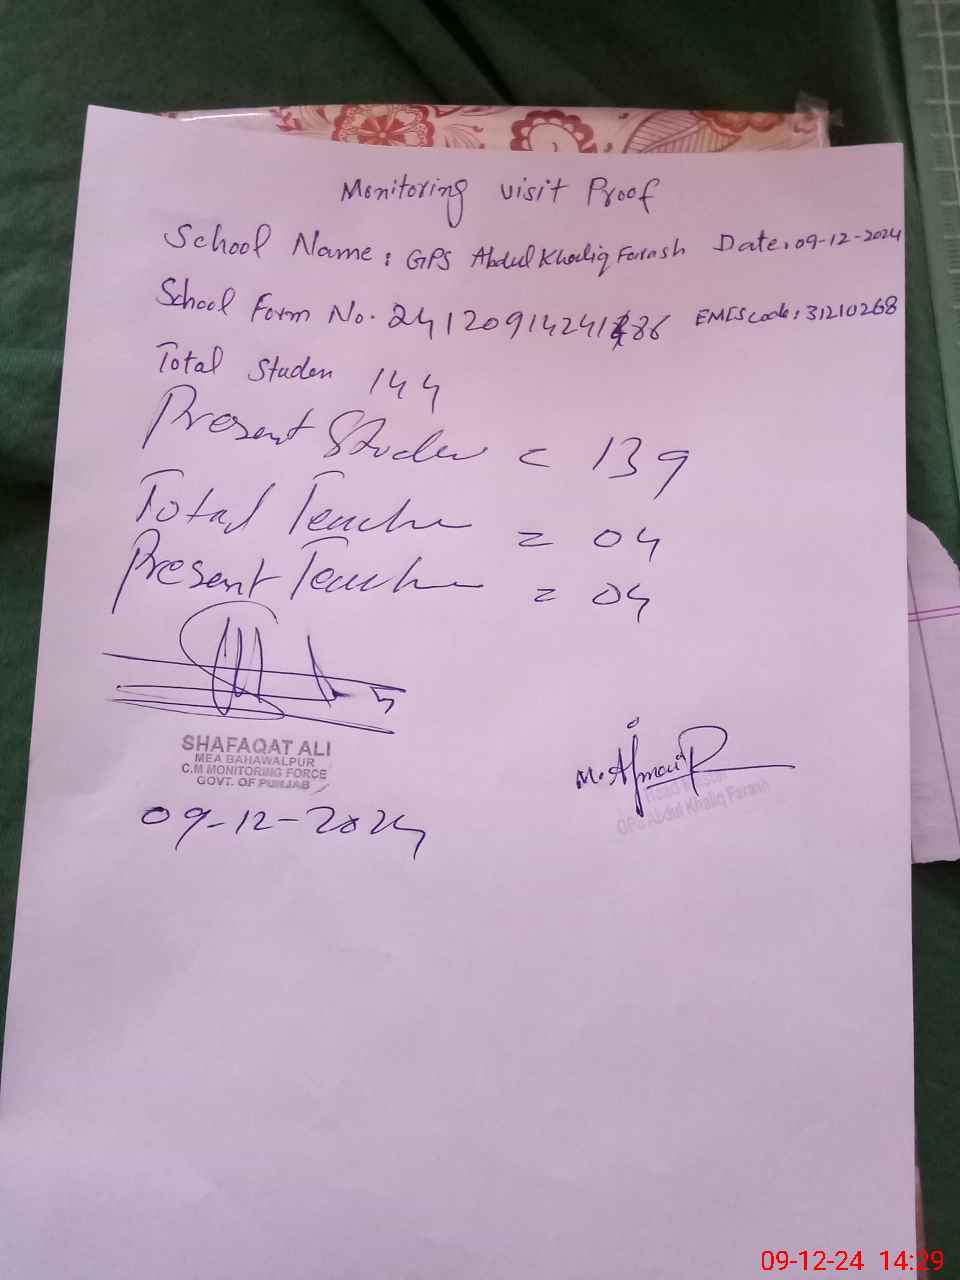 Monitoring visit Proof
School Name: GPS Abdul Khaliq Farash Date: 09-12-2024
School Form No. 24120914241886 EMIS code: 31210268
Total Studen 144
Present Studen = 139
Total Teacher = 04
Present Teacher = 04
SHAFAQAT ALI
MEA BAHAWALPUR
C.M MONITORING FORCE
GOVT. OF PUNJAB
09-12-2024
M. Ajmal
Head
GPS Abdul Khaliq Farash
09-12-24 14:29